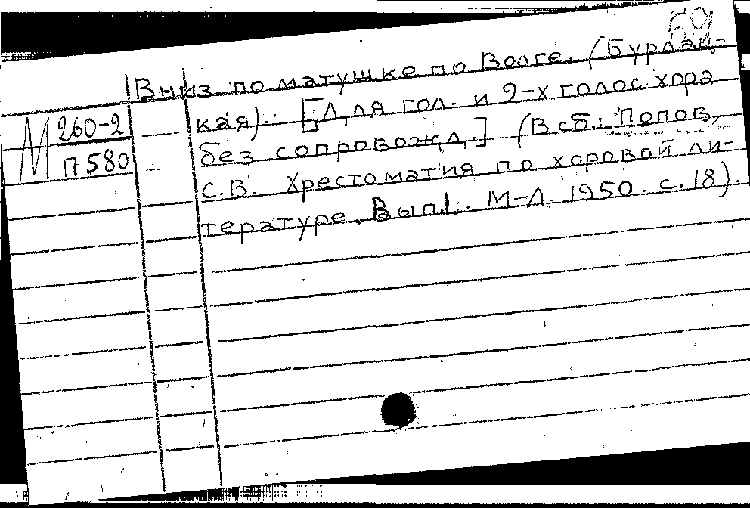 Вниз по матушке по Волге. (Бурлац-
кая). [Для гол. и 2-х голос. хора
без сопровожд.] (В сб.: Попов,
С.В. Хрестоматия по хоровой ли-
тературе. Вып 1. М-Л. 1950. с. 18).
М 260-2
П 580